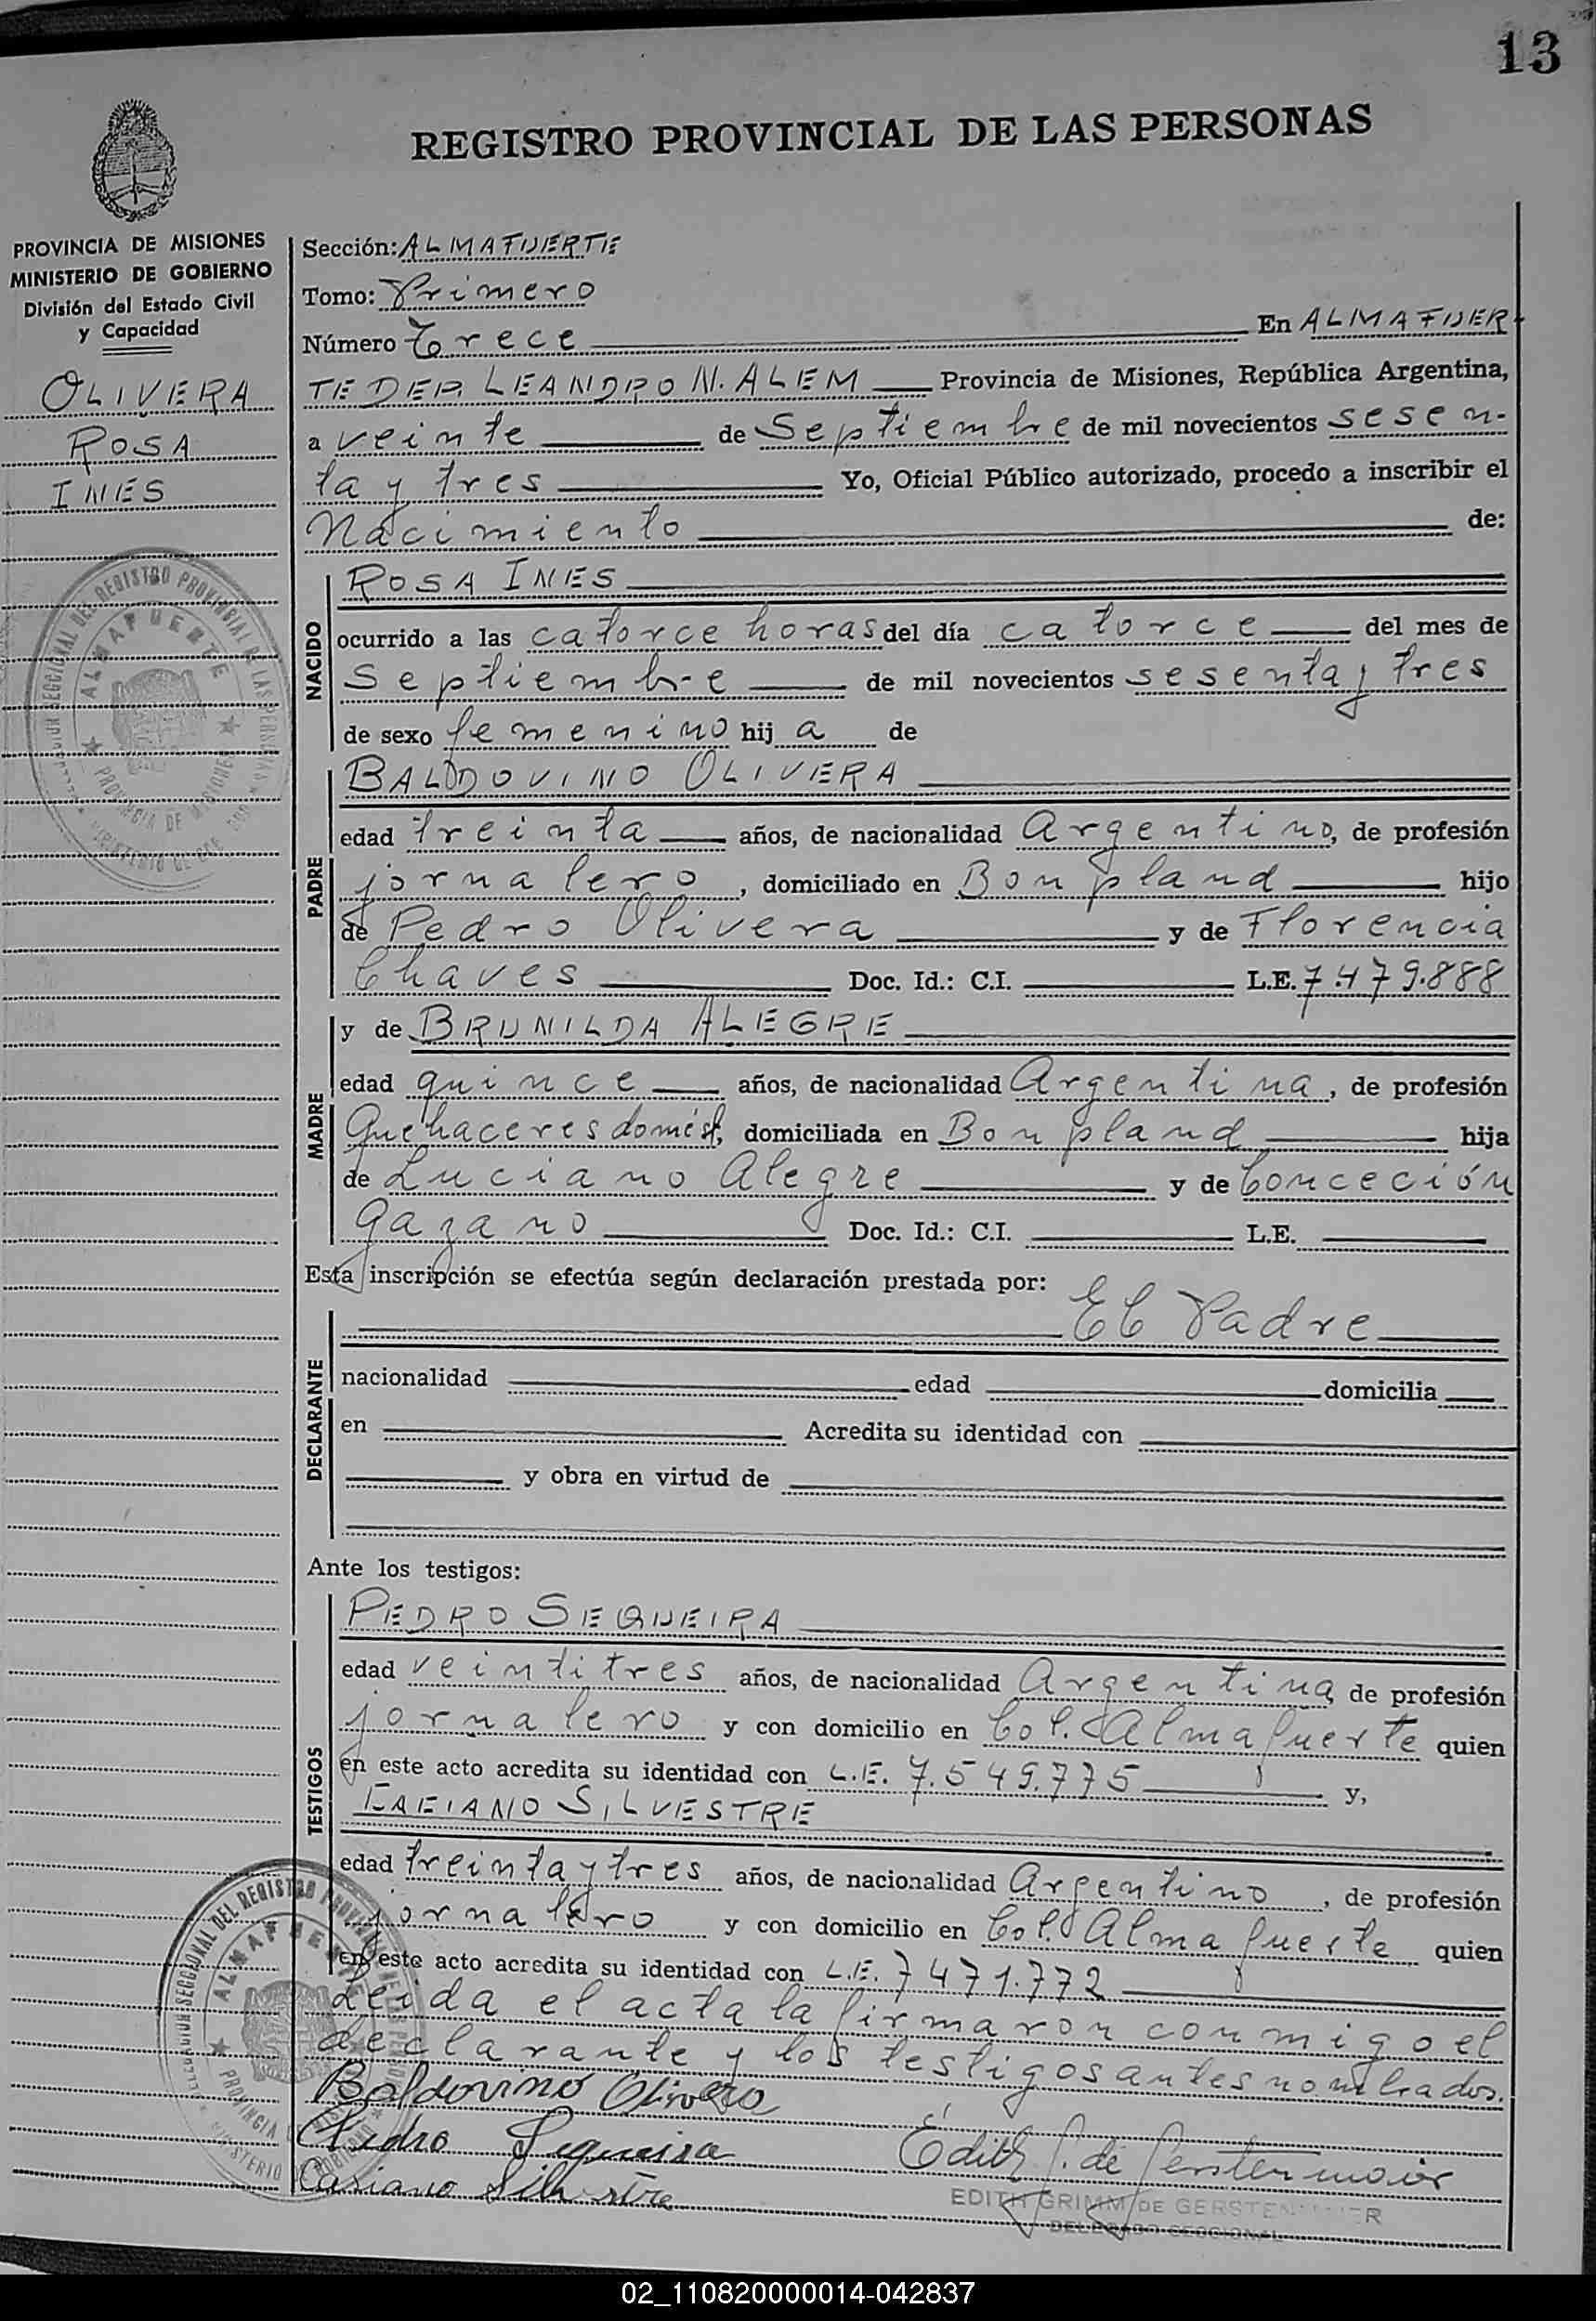 13
REGISTRO PROVINCIAL DE LAS PERSONAS
PROVINCIA DE MISIONES
MINISTERIO DE GOBIERNO
División del Estado Civil
y Capacidad
OLIVERA
ROSA
INES
Sección: ALMAFUERTE
Tomo: Primero
Número Trece En ALMAFUER-
TE DEP. LEANDRO N. ALEM Provincia de Misiones, República Argentina,
a veinte de Septiembre de mil novecientos sesen-
ta y tres Yo, Oficial Público autorizado, procedo a inscribir el
Nacimiento de:
NACIDO
ROSA INES
ocurrido a las catorce horas del día catorce del mes de
Septiembre de mil novecientos sesenta y tres
de sexo femenino hij a de
PADRE
BALDOVINO OLIVERA
edad treinta años, de nacionalidad Argentino, de profesión
jornalero, domiciliado en Bonpland hijo
de Pedro Olivera y de Florencia
Chaves Doc. Id.: C.I. L.E. 7.479.888
MADRE
y de BRUNILDA ALEGRE
edad quince años, de nacionalidad Argentina, de profesión
Quehaceres domést, domiciliada en Bonpland hija
de Luciano Alegre y de Conceción
Gazano Doc. Id.: C.I. L.E.
Esta inscripción se efectúa según declaración prestada por:
DECLARANTE
El Padre
nacionalidad edad domicilia
en Acredita su identidad con
y obra en virtud de
Ante los testigos:
TESTIGOS
PEDRO SEQUEIRA
edad veintitres años, de nacionalidad Argentina de profesión
jornalero y con domicilio en Col. Almafuerte quien
en este acto acredita su identidad con L.E. 7.549.775 y,
SILVESTRE
edad treinta y tres años, de nacionalidad Argentino, de profesión
jornalero y con domicilio en Col. Almafuerte quien
en este acto acredita su identidad con L.E. 7471.772
Leida el acta la firmaron conmigo el
declarante y los testigos antes nombrados.
Baldovino Olivera
Pedro Sequeira
Silvestre
Edith G. de Gerstenmaier
EDITH GRIMM DE GERSTENMAIER
DELEGADO SECCIONAL
REGISTRO PROVINCIAL DE LAS PERSONAS
ALMAFUERTE
PROVINCIA DE MISIONES
02_110820000014-042837